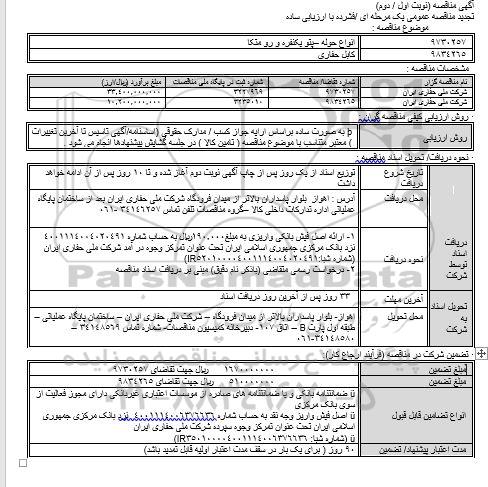 آگهی مناقصه (نوبت اول / دوم)
تجدید مناقصه عمومی یک مرحله ای /فشرده با ارزیابی ساده
موضوع مناقصه :
۹۷۳۰۲۵۷ انواع حوله –پتو یکنفره و رو متکا
۹۸۳۴۲۶۵ کابل حفاری
مشخصات مناقصه :
نام مناقصه گزار شماره تقاضا/ مناقصه شماره ثبت در پایگاه ملی مناقصات مبلغ برآورد (ریال/ارز)
شرکت ملی حفاری ایران ۹۷۳۰۲۵۷ ۳۲۲۷۹۶۹ ۳۳,۴۰۰,۰۰۰,۰۰۰
شرکت ملی حفاری ایران ۹۸۳۴۲۶۵ ۳۲۳۵۰۱۰ ۱۰,۲۰۰,۰۰۰,۰۰۰
روش ارزیابی کیفی مناقصه گران :
روش ارزیابی þ به صورت ساده براساس ارایه جواز کسب / مدارک حقوقی (اساسنامه/آگهی تاسیس تا آخرین تغییرات ) معتبر متناسب با موضوع مناقصه ( تامین کالا ) در جلسه گشایش پیشنهادها انجام می شود .
نحوه دریافت/ تحویل اسناد مناقصه :
دریافت اسناد توسط شرکت
تاریخ شروع دریافت توزیع اسناد از یک روز پس از چاپ آگهی نوبت دوم آغاز شده و تا ۱۰ روز پس از آن ادامه خواهد داشت
محل دریافت آدرس : اهواز بلوار پاسداران بالاتر از میدان فرودگاه شرکت ملی حفاری ایران بعد از ساختمان پایگاه عملیاتی اداره تدارکات داخلی کالا –گروه مناقصات تلفن تماس ۳۴۱۴۶۲۵۷-۰۶۱
نحوه دریافت ۱- ارائه اصل فیش بانکی واریزی به مبلغ۱۹۰,۰۰۰ریال به حساب شماره ۴۰۰۱۱۱۴۰۰۴۰۲۰۴۹۱
نزد بانک مرکزی جمهوری اسلامی ایران تحت عنوان تمرکز وجوه در آمد شرکت ملی حفاری ایران
(شماره شبا:IR۵۲۰۱۰۰۰۰۴۰۰۱۱۱۴۰۰۴۰۲۰۴۹۱)
۲- درخواست رسمی متقاضی (باذکر نام دقیق) مبنی بر دریافت اسناد مناقصه
تحویل اسناد به شرکت
آخرین مهلت ۳۳ روز پس از آخرین روز دریافت اسناد
محل تحویل اهواز- بلوار پاسداران بالاتر از میدان فرودگاه – شرکت ملی حفاری ایران – ساختمان پایگاه عملیاتی – طبقه اول پارت B – اتاق ۱۰۷- دبیرخانه کمیسیون مناقصات- شماره تماس ۳۴۱۴۸۵۶۹ – ۳۴۱۴۸۵۸۰-۰۶۱
تضمین شرکت در مناقصه (فرآیند ارجاع کار):
مبلغ تضمین ۱۶۷۰۰۰۰۰۰۰ ریال جهت تقاضای ۹۷۳۰۲۵۷
مبلغ تضمین ۵۱۰۰۰۰۰۰۰ ریال جهت تقاضای ۹۸۳۴۲۶۵
انواع تضامین قابل قبول ü ضمانتنامه بانکی و یا ضمانتنامه های صادره از موسسات اعتباری غیربانکی دارای مجوز فعالیت از سوی بانک مرکزی
ü اصل فیش واریز وجه نقد به حساب شماره ۴۰۰۱۱۱۴۰۰۶۳۷۶۶۳۶ نزد بانک مرکزی جمهوری اسلامی ایران تحت عنوان تمرکز وجوه سپرده شرکت ملی حفاری ایران
ü (شماره شبا: IR۳۵۰۱۰۰۰۰۴۰۰۱۱۱۴۰۰۶۳۷۶۶۳۶)
مدت اعتبار پیشنهاد/ تضمین ۹۰ روز ( برای یک بار در سقف مدت اعتبار اولیه قابل تمدید باشد)
ParsNamadData